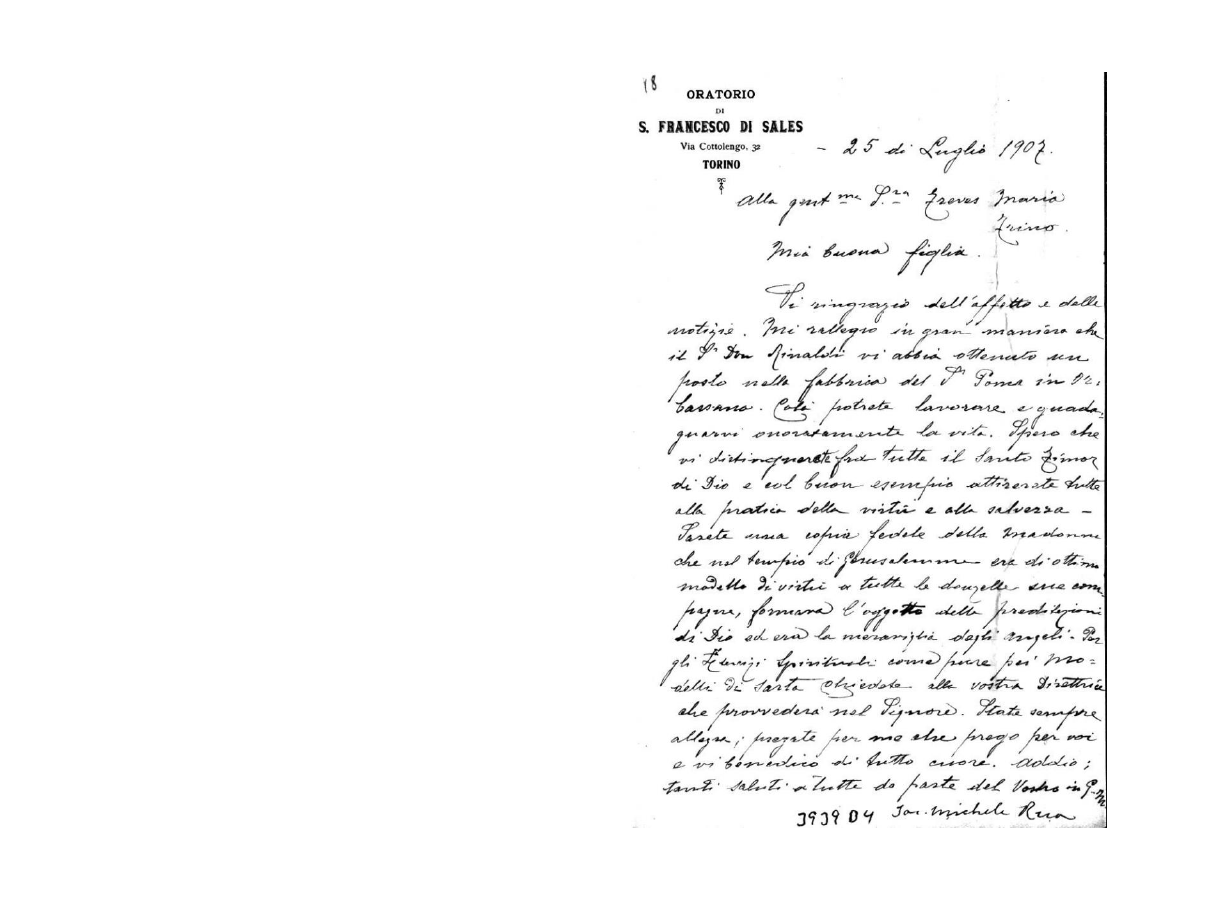 18
ORATORIO
DI
S. FRANCESCO DI SALES
Via Cottolengo, 32
TORINO
- 25 di Luglio 1907.
Alla gent.ma S.ra Treves Maria
Trino.
Mia buona figlia.
Vi ringrazio dell'affetto e delle
notizie. Mi rallegro in gran maniera che
il Sr Don Rinaldi vi abbia ottenuto un
posto nella fabbrica del Sr Poma in
Colà potrete lavorare e guada-
gnarvi onoratamente la vita. Spero che
vi distinguerete fra tutte il Santo Timor
di Dio e col buon esempio attirerete tutte
alla pratica della virtù e alla salvezza -
Sarete una copia fedele della Madonna
che nel tempio di Gerusalemme era di ottimo
modello di virtù a tutte le donzelle sue com-
pagne, formava l'oggetto delle predilezioni
di Dio ed era la meraviglia degli angeli - Per
gli Esercizi Spirituali come pure pei Mo=
delli di Sarta chiedete alla vostra Direttrice
che provvederà nel Signore. State sempre
allegra; pregate per me che prego per voi
e vi benedico di tutto cuore. Addio;
tanti saluti a tutte da parte del Vostro in G. M.
Sac. Michele Rua
3939 D4